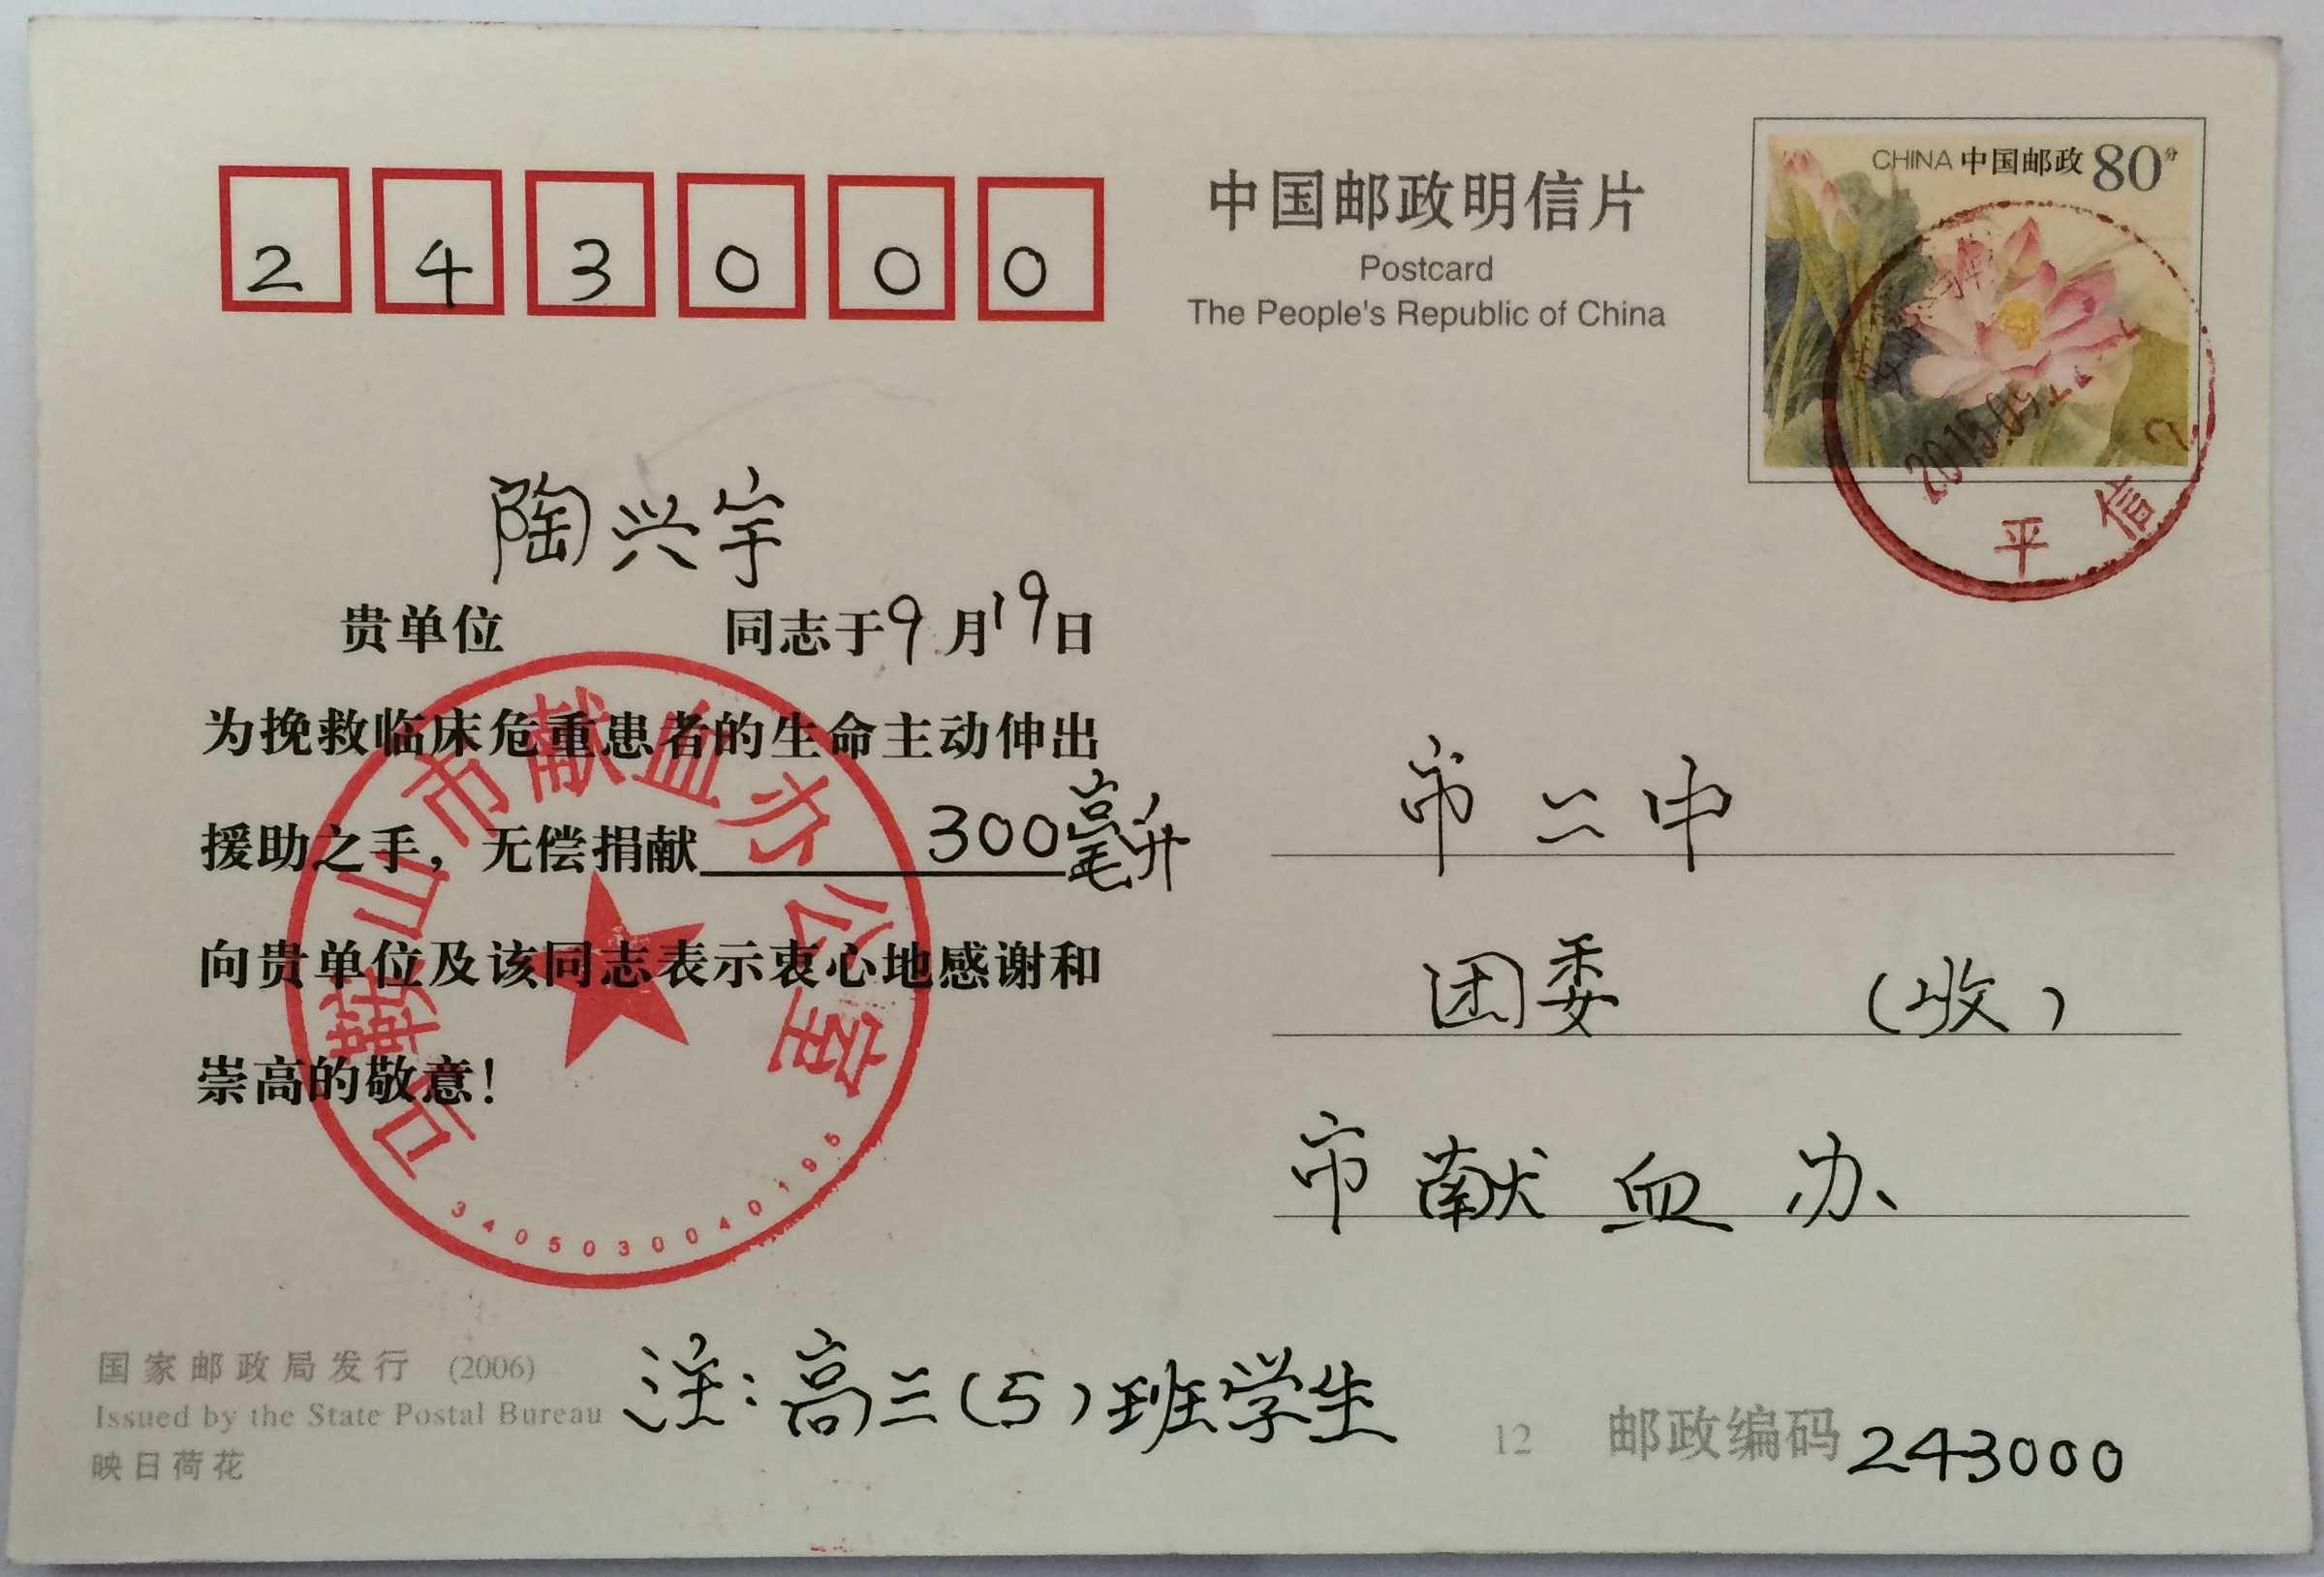 243000
中国邮政明信片
Postcard
The People's Republic of China
CHINA 中国邮政 80分
2015.09
平信
2
陶兴宇
贵单位 同志于9月19日
为挽救临床危重患者的生命主动伸出
援助之手，无偿捐献300毫升
向贵单位及该同志表示衷心地感谢和
崇高的敬意！
马鞍山市献血办公室
3405030040195
市二中
团委 （收）
市献血办
国家邮政局发行 (2006)
Issued by the State Postal Bureau
映日荷花
注：高三（5）班学生
12 邮政编码 243000